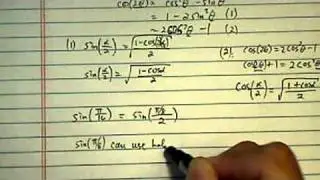 cos(2θ) = cos²θ - sin²θ
= 1 - 2sin²θ (1)
= 2cos²θ - 1 (2)
(1) sin(α/2) = √((1-cos(α))/2)
(2) cos(2θ) = 2cos²θ - 1
sin(α/2) = √((1-cosα)/2)
cos(α/2) = √((1+cosα)/2)
sin(π/6) = sin((π/3)/2)
sin(π/6) can use hal